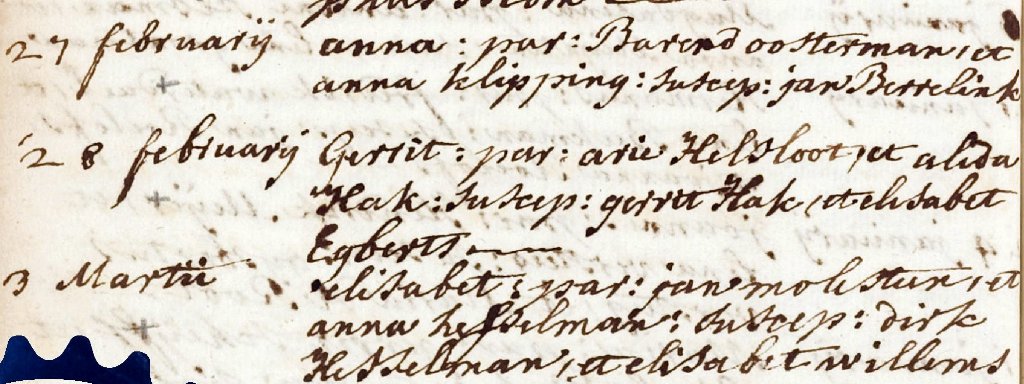 27 februarij anna: par: Barend oosterman, et
anna klipping: suscep: jan Berrelink
28 februarij Gerrit: par: arie Helsloot, et alida
Hak: suscep: gerrit Hak, et elisabet
Egberts
3 Martii elisabet: par: jan molesteen, et
anna hesselman: suscep: dirk
Hesselman, et elisabet willems